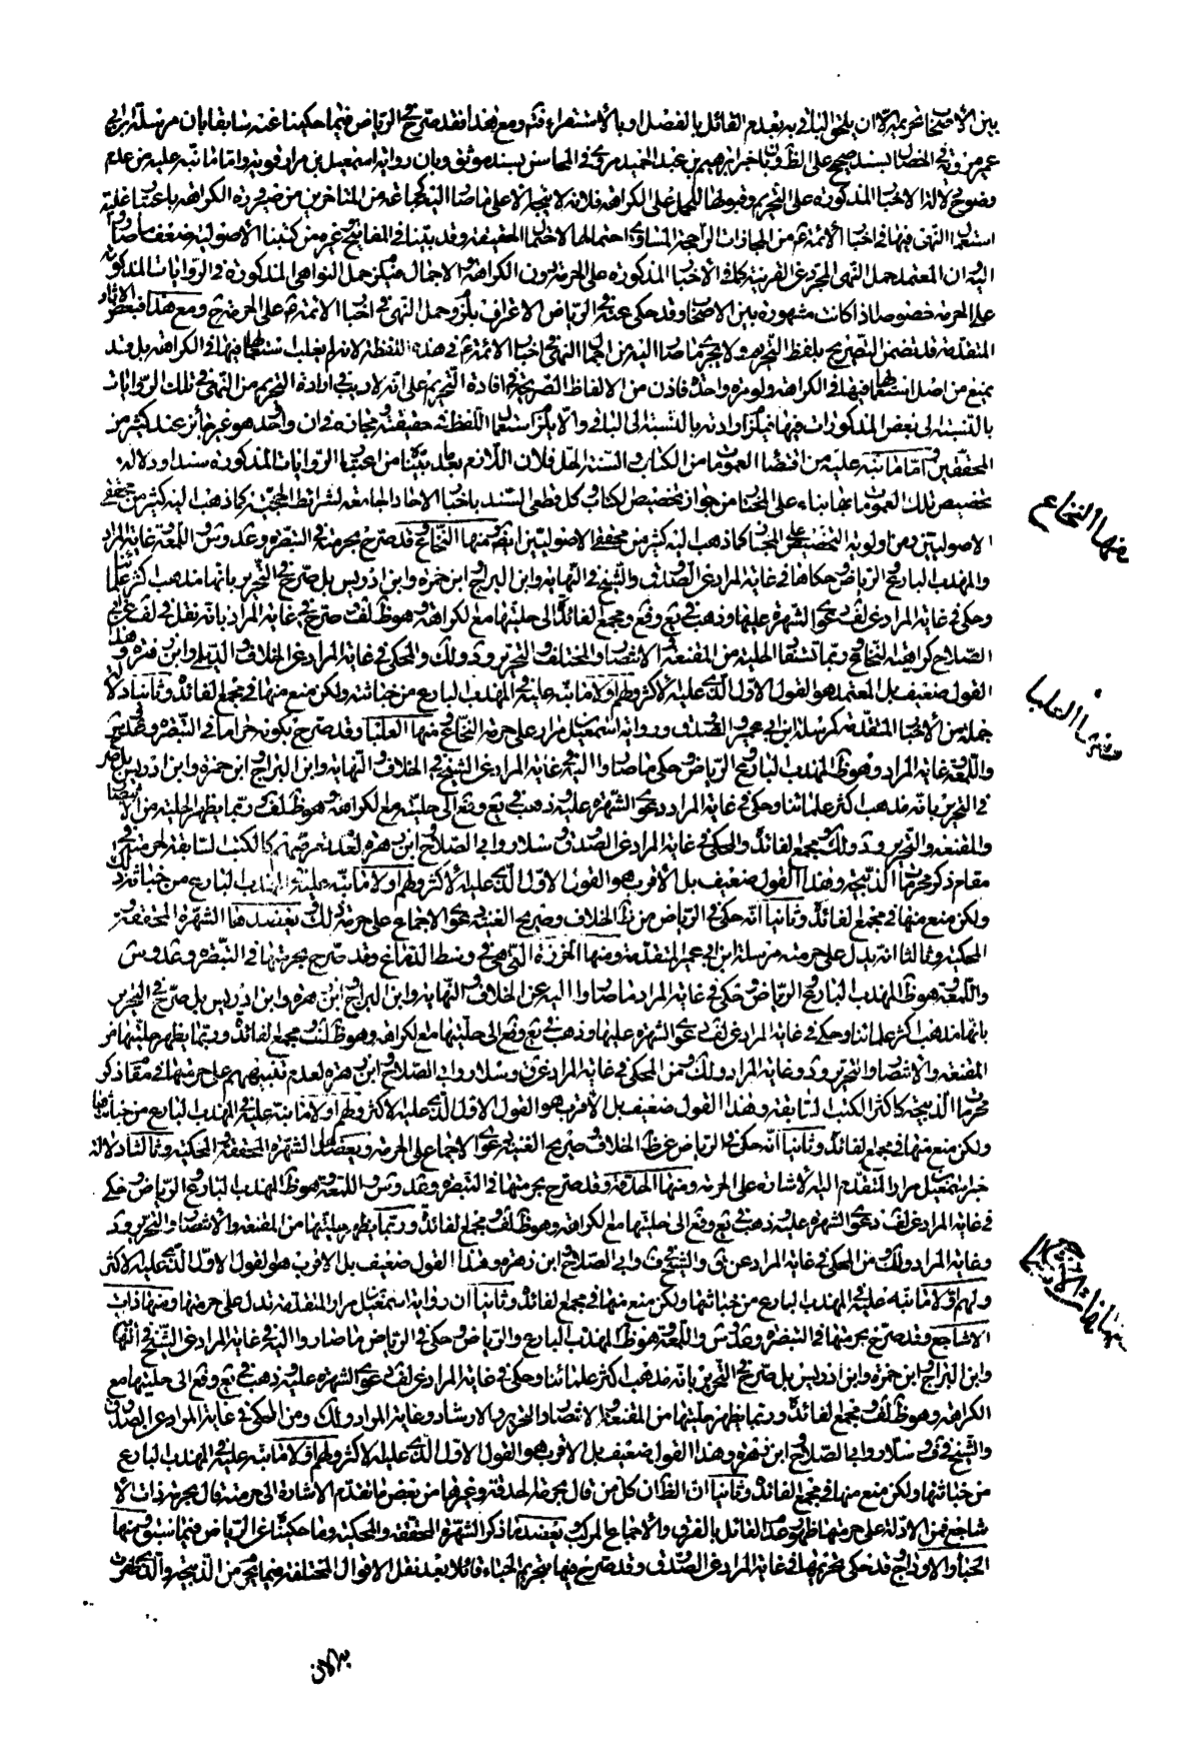 بين الأصحاب تحريمه الا ان يلحق الباقي به بعدم القائل بالفصل او بالاستقراء فتم ومع هذا فقد صرح في الرياض فيما حكينا عنه سابقا بان مرسلة ابن ابي
عمير مروية في الخصال بسند صحيح على الظ وبان خبر ابرهيم بن عبد الحميد مروي في المحاسن بسند موثق وبان رواية اسمعيل بن مرار قوية واما ما نبه عليه من عدم
وضوح دلالة الاخبار المذكورة على التحريم وقبولها للحمل على الكراهة فلانه لا يتجه الا على ما صار اليه جماعة من المتأخرين من صيرورة الكراهة باعتبار غلبة
استعمال النهي فيها في اخبار الائمة ع من المجازات الراجحة المساوي احتمالها لاحتمال الحقيقة وقد بينا في المفاتيح وغيره من كتبنا الأصولية ضعف ما صاروا
اليه ان المعتمد حمل النهى المجرد عن القرينة كما في الأخبار المذكورة على الحرمة دون الكراهة والاجمال فيلزم حمل النواهي المذكورة في الروايات المذكورة
على الحرمة خصوصا اذا كانت مشهورة بين الاصحاب وقد حكى عنه في الرياض الاعتراف بلزوم حمل النهي في اخبار الائمة ع على الحرمة ح ومع هذا فبعض الاخبار
المتقدمة قد تضمن التصريح بلفظ التحريم ولا يجري ما صار اليه من اجمال النهي في اخبار الائمة ع في هذه اللفظة لانه لم يغلب استعمالها فيها في الكراهة بل قد
يمنع من اصل استعمالها فيها في الكراهة ولو مرة واحدة فاذن من الالفاظ الصريحة في افادة التحريم على انه لا ريب في ارادة التحريم من النهي في تلك الروايات
بالنسبة الى بعض المذكورات فيها فيلزم ارادته بالنسبة الى الباقي والا يلزم استعمال اللفظ في حقيقته ومجازه في ان واحد وهو غير جائز عند كثير من
المحققين واما ما نبه عليه من اقتضاء العمومات من الكتاب والسنة الحل فلان اللازم بعد ما بيناه من اعتبار الروايات المذكورة سندا ودلالة
تخصيص تلك العمومات بها بناء على المختار من جواز تخصيص الكتاب وكل قطعي السند باخبار الاحاد الجامعة لشرائط الحجية كما ذهب اليه كثير من محققي
الاصوليين ومن اولوية التخصيص على المجاز كما ذهب اليه كثير من محققي الاصوليين ايضا ومنها النخاع وقد صرح بحرمته في التبصرة وعد وس واللمعة وغاية المراد
والمهذب البارع والرياض وحكاها في غاية المراد عن الصدوق والشيخ في النهاية وابن البراج وابن حمزة وابن ادريس بل صرح في التحرير بانها مذهب اكثر علمائنا
وحكى في غاية المراد عن لف دعوى الشهرة عليها وذهب في يع وفع ومجمع الفائدة الى حليتها مع الكراهة وهو ظ لف وصرح في غاية المراد بانه نقل في لف عن ابي
الصلاح كراهية النخاع وربما تشتفا الحلية من المقنعة والانتصار والمختلف والتحرير وشد ولك والمحكي في غاية المراد عن الخلاف والديلمي وابن زهرة وهذا
القول ضعيف بل المعتمد هو القول الاول الذي عليه الأكثر ولهم اولا ما نبه عليه في المهذب البارع من خباثته ولكن منع منها في مجمع الفائدة وثانيا دلالة
جملة من الأخبار المتقدمة كمرسلة ابن ابي عمير والصدوق ورواية اسمعيل بن مرار على حرمة النخاع ومنها العلباء وقد صرح بكونه حراما في التبصرة وعد وس
واللمعة وغاية المراد وهو ظ المهذب البارع والرياض وحكى ما صاروا اليه في غاية المراد عن الشيخ في الخلاف والنهاية وابن البراج وابن حمزة وابن ادريس بل صرح
في التحرير بانه مذهب اكثر علمائنا وحكى في غاية المراد دعوى الشهرة عليه وذهب في يع وفع الى حليته مع الكراهة وهو ظ لف وربما يظهر الحلية من الانتصار
والمقنعة والتحرير وشد ولك ومجمع الفائدة والمحكي في غاية المراد عن الصدوق وسلار وابي الصلاح وابن زهرة لعدم تعرضهم كالكتب السابقة لحرمته في
مقام ذكر محرمات الذبيحة وهذا القول ضعيف بل الأقرب هو القول الاول الذي عليه الأكثر ولهم اولا ما نبه عليه في المهذب البارع من خباثة ذلك
ولكن منع منها في مجمع الفائدة وثانيا انه حكى في الرياض من ظ الخلاف وصريح الغنية دعوى الاجماع على حرمة ذلك ويعضدها الشهرة المحققة و
المحكية وثالثا انه يدل على حرمته مرسلة ابن ابي عمير المتقدمة ومنها الخرزة التي هي في وسط الدماغ وقد صرح بحرمتها في التبصرة وعد وس
واللمعة وهو ظ المهذب البارع والرياض وحكى في غاية المراد ما صاروا اليه عن الخلاف والنهاية وابن البراج وابن حمزة وابن ادريس بل صرح في التحرير
بانها مذهب اكثر علمائنا وحكى في غاية المراد عن لف دعوى الشهرة عليها وذهب في يع وفع الى حليتها مع الكراهة وهو ظ لف ومجمع الفائدة وربما يظهر حليتها من
المقنعة والانتصار والتحرير وشد وغاية المراد ولك ومن المحكي في غاية المراد عن ق وسلار وابي الصلاح وابن زهرة لعدم تنبيههم على حرمتها في مقام ذكر
محرمات الذبيحة كاكثر الكتب السابقة وهذا القول ضعيف بل الأقرب هو القول الاول الذي عليه الاكثر ولهم اولا ما نبه عليه في المهذب البارع من خباثتها
ولكن منع منها في مجمع الفائدة وثانيا انه حكى في الرياض عن ظ الخلاف وصريح الغنية دعوى الاجماع على الحرمة ويعضدها الشهرة المحققة والمحكية وثالثا دلالة
خبر اسمعيل بن مرار المتقدم اليه الاشارة على الحرمة ومنها الحدقة وقد صرح بحرمتها في التبصرة وعد وس واللمعة وهو ظ المهذب البارع والرياض وحكى
في غاية المراد عن لف دعوى الشهرة عليه وذهب في يع وفع الى حليتها مع الكراهة وهو ظ لف ومجمع الفائدة وربما يظهر حليتها من المقنعة والانتصار والتحرير وشد
وغاية المراد ولك ومن المحكي في غاية المراد عن ق والشيخ في ف وابي الصلاح وابن زهرة وهذا القول ضعيف بل الاقرب هو القول الاول الذي عليه الاكثر
ولهم اولا ما نبه عليه في المهذب البارع من خباثتها ولكن منع منها في مجمع الفائدة وثانيا ان رواية اسمعيل بن مرار المتقدمة تدل على حرمتها ومنها ذات
الاشاجع وقد صرح بحرمتها في التبصرة وعد وس واللمعة وهو ظ المهذب البارع والرياض وحكى في الرياض ما صاروا اليه في غاية المراد عن الشيخ في النهاية
وابن البراج وابن حمزة وابن ادريس بل صرح في التحرير بانه مذهب اكثر علمائنا وحكى في غاية المراد عن لف دعوى الشهرة عليه وذهب في يع وفع الى حليتها مع
الكراهة وهو ظ لف ومجمع الفائدة وربما يظهر حليتها من المقنعة والانتصار والتحرير والارشاد وغاية المراد ولك ومن المحكي في غاية المراد عن الصدوق
والشيخ في ف وسلار وابي الصلاح وابن زهرة وهذا القول ضعيف بل الاقرب هو القول الاول الذي عليه الاكثر ولهم اولا ما نبه عليه في المهذب البارع
من خباثتها ولكن منع منها في مجمع الفائدة وثانيا ان الظ ان كل من قال بحرمة الحدقة وغيرها من بعض ما تقدم الاشارة الى حرمته قال بحرمة ذات الا
شاجع فمن الادلة على حرمتها ظهور عدم القائل بالفرق والاجماع المركب ويعضده ما ذكر الشهرة المحققة والمحكية وما حكيناه عن الرياض فيما سبق ومنها
الحياء والاوداج وقد حكى تحريمها في غاية المراد عن الصدوق وقد صرح فيها بتحريم الحياء قائلا بعد نقل الاقوال المختلفة فيما يحرم من الذبيحة والذي
ومنها النخاع
ومنها العلباء